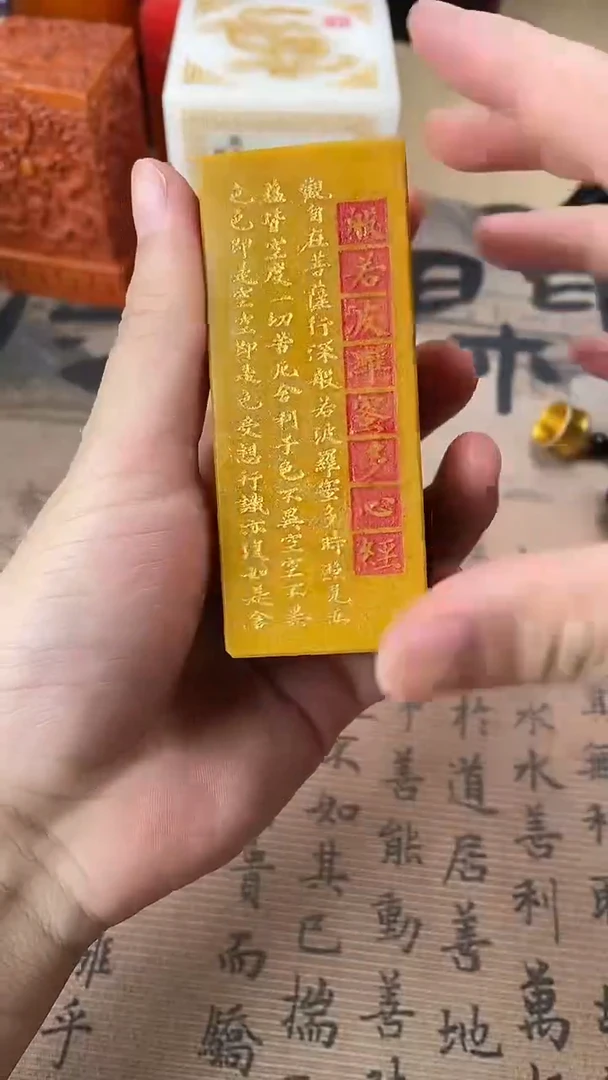 般若波羅蜜多心經
觀自在菩薩行深般若波羅蜜多時照見五
蘊皆空度一切苦厄舍利子色不異空空不異
色色即是空空即是色受想行識亦復如是舍
水水善利萬
於道居善地
善能動善
不如其已揣
貴而驕
離乎